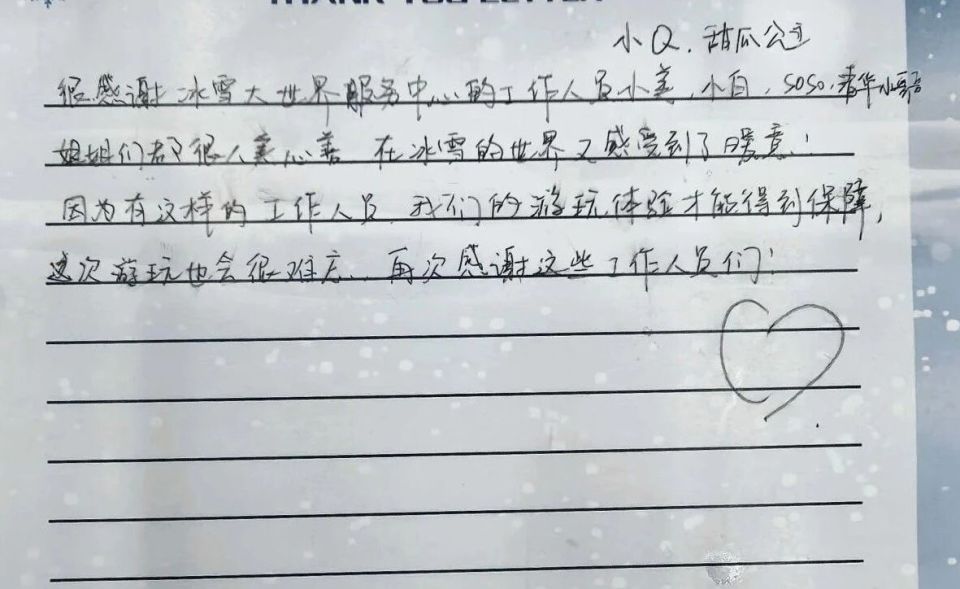 THANK YOU LETTER
小Q.甜瓜公主
很感谢冰雪大世界服务中心的工作人员小美、小白、SOSO、春华小
姐姐们都很人美心善 在冰雪的世界又感受到了暖意!
因为有这样的工作人员 我们的游玩体验才能得到保障,
这次游玩也会很难忘、再次感谢这些工作人员们!